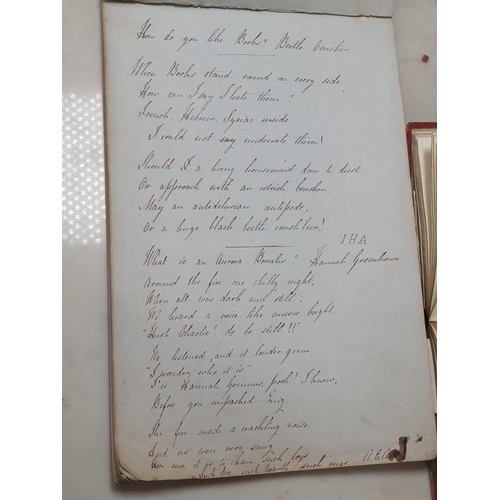 How do you like Books? Beetle Crusher
When Books stand round on every side,
How can I say I hate them?
French, Hebrew, Syriac inside
I would not say underrate them!
Should I a living housemaid dare to dust
Or approach with an ostrich
May an antediluvian
Or a huge black beetle crush her!
J.H.A.
What is an Aurora Borealis? Hannah Greenhouse
Around the fire one chilly night,
When all was dark and still;
We heard a voice like
"Hush Charlie! do be still!!"
We listened, and it louder grew
"I wonder who it is"
'Tis Hannah pooh! I knew,
Before you
The fire made a crackling noise
And we were very snug
How nice it is to have such boys
such